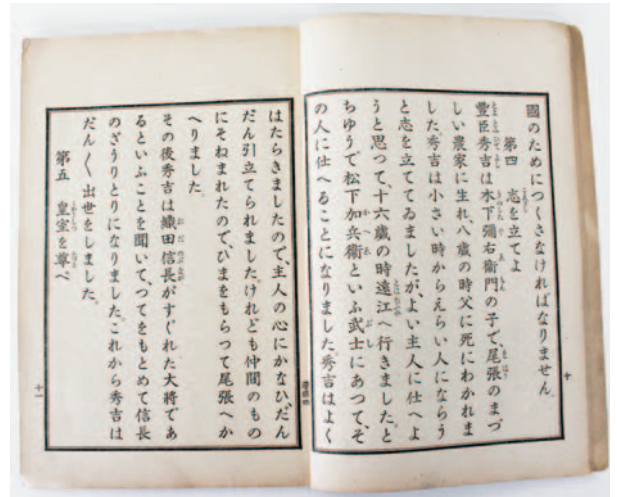 國のためにつくさなければなりません。
第四 志を立てよ
豐臣秀吉は木下彌右衛門の子で、尾張のまづ
しい農家に生れ、八歳の時父に死にわかれま
した。秀吉は小さい時からえらい人にならう
と志を立ててゐましたが、よい主人に仕へよ
うと思つて、十六歳の時遠江へ行きました。と
ちゆうで松下加兵衛といふ武士にあつて、そ
の人に仕へることになりました。秀吉はよく
十
はたらきましたので、主人の心にかなひ、だん
だん引立てられました。けれども仲間のもの
にそねまれたので、ひまをもらつて尾張へか
へりました。
その後秀吉は織田信長がすぐれた大將であ
るといふことを聞いて、つてをもとめて信長
のざうりとりになりました。これから秀吉は
だん〱出世をしました。
第五 皇室を尊べ
十一